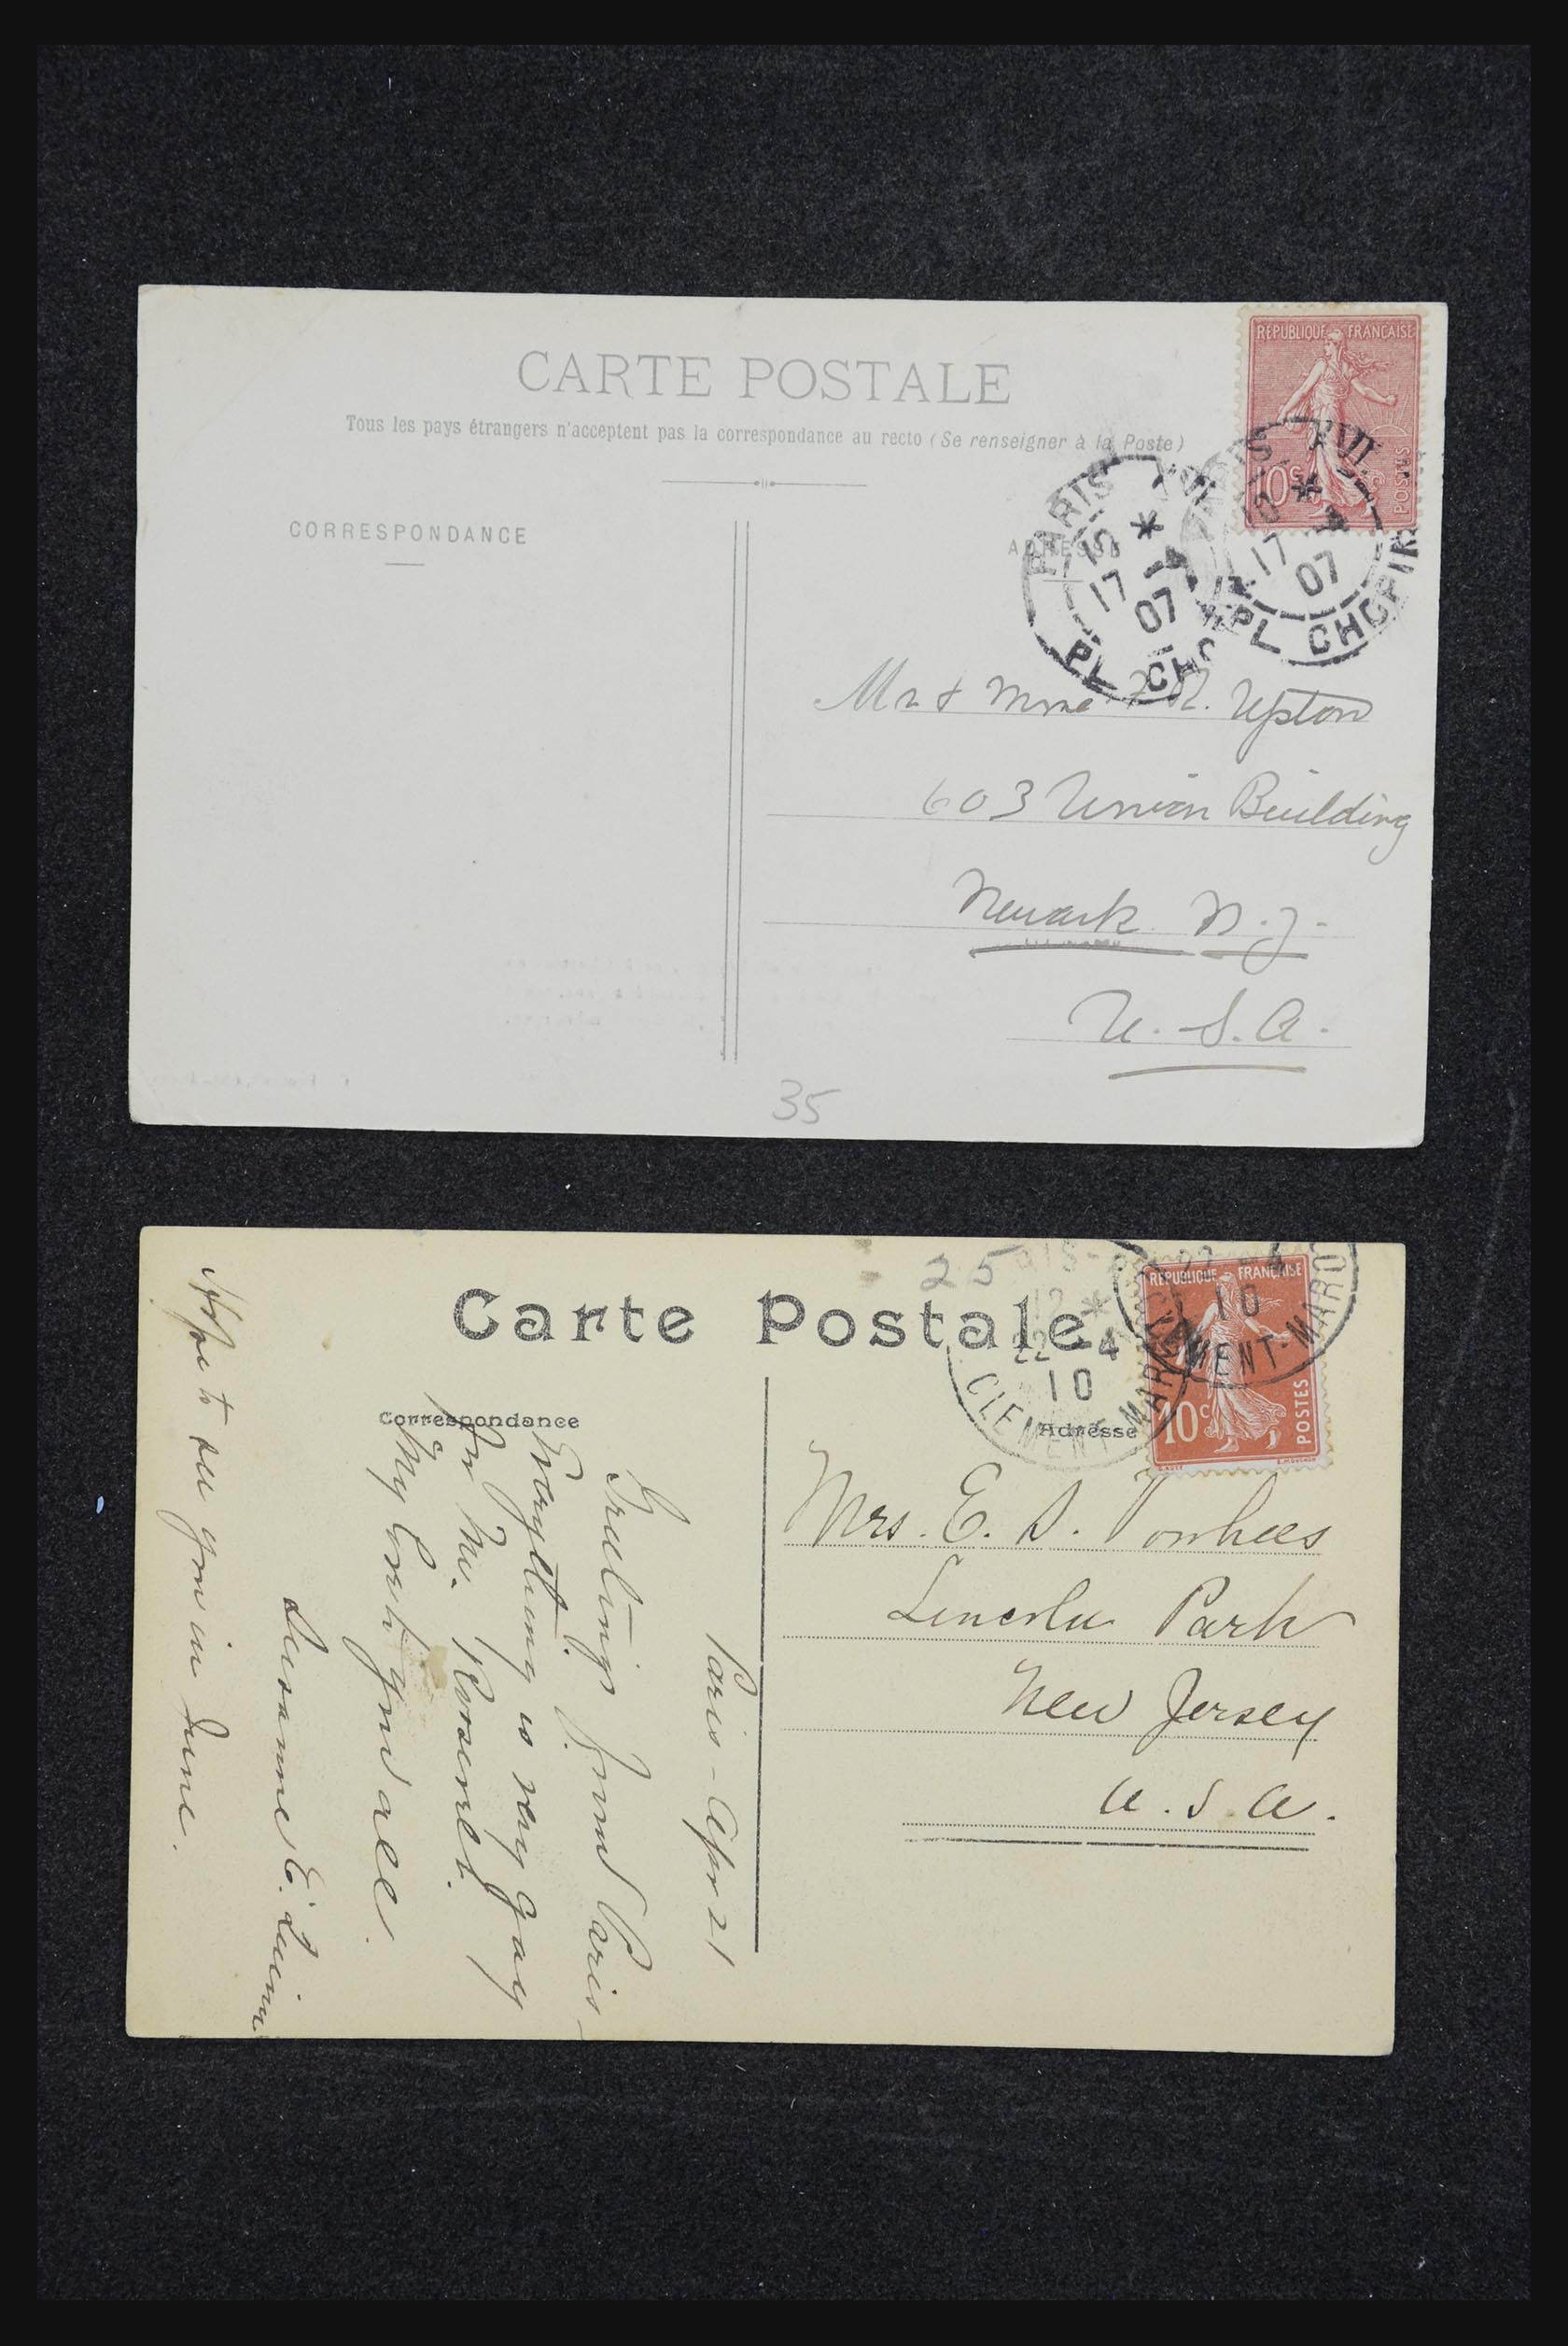 CARTE POSTALE
Tous les pays étrangers n'acceptent pas la correspondance au recto (Se renseigner à la Poste)
CORRESPONDANCE
ADRESSE
REPUBLIQUE FRANÇAISE
10c
POSTES
PARIS
15 *
17 -4
07
PL CHO
PARIS XVI
17 -4
07
PL CHOPIN
Mr & Mme R. Upton
603 Union Building
Newark N.J.
U.S.A.
35
25
Carte Postale
Correspondance
Adresse
REPUBLIQUE FRANÇAISE
10c
POSTES
12 *
22 -4
10
CLEMENT-MAR
22 -4
10
CLEMENT-MARO
Mrs. E. D. Voorhees
Lincoln Park
New Jersey
U.S.A.
Paris - Apr 21
Greetings from Paris -
Everything is very gay
for Mr. Roosevelt.
My love to you all.
Susanne E.
Hope to see you in June.